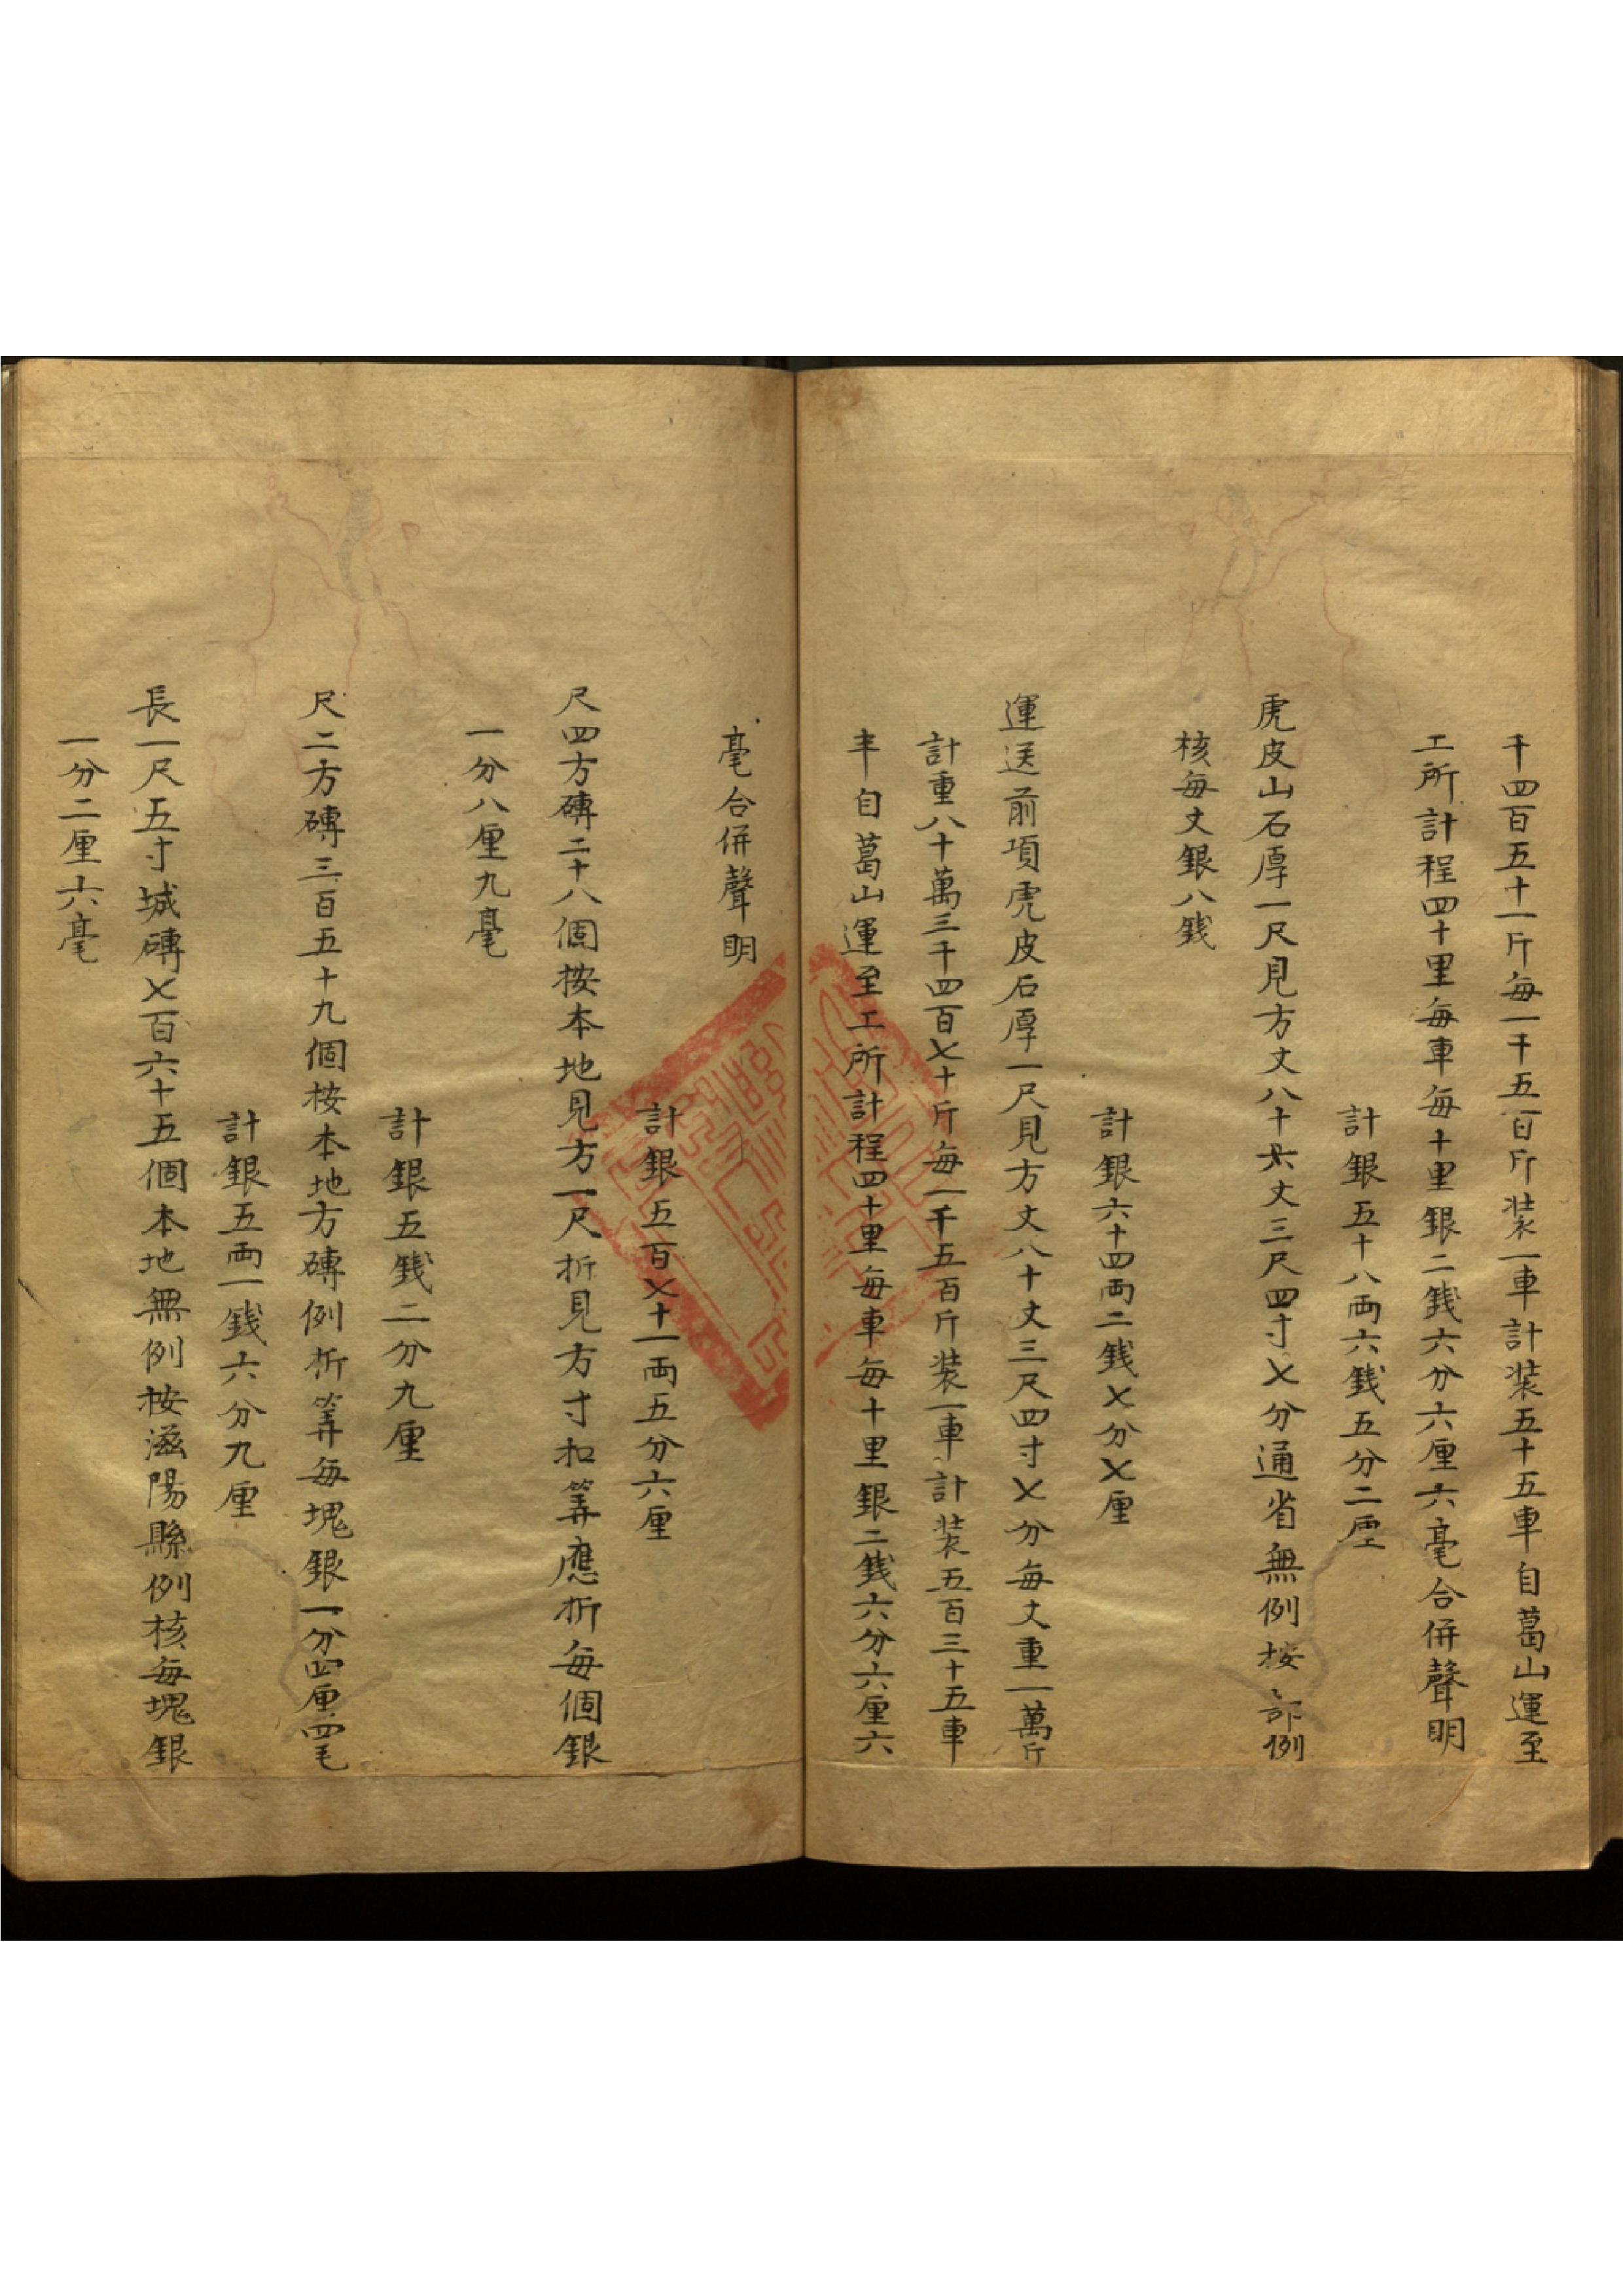 千四百五十一斤每一千五百斤装一車計装五十五車自葛山運至
工所計程四十里每車每十里銀二銭六分六厘六毫合併聲明
計銀五十八両六銭五分二厘
虎皮山石厚一尺見方丈八十六丈三尺四寸七分通省無例按部例
核每丈銀八銭
計銀六十四両二銭七分七厘
運送前項虎皮石厚一尺見方丈八十丈三尺四寸七分每丈重一萬斤
計重八十萬三千四百七十斤每一千五百斤装一車計装五百三十五車
半自葛山運至工所計程四十里每車每十里銀二銭六分六厘六
毫合併聲明
計銀五百七十一両五分六厘
尺四方磚二十八個按本地見方一尺折見方寸扣筭應折每個銀
一分八厘九毫
計銀五銭二分九厘
尺二方磚三百五十九個按本地方磚例折筭每塊銀一分四厘四毛
計銀五両一銭六分九厘
長一尺五寸城磚七百六十五個本地無例按滋陽縣例核每塊銀
一分二厘六毫